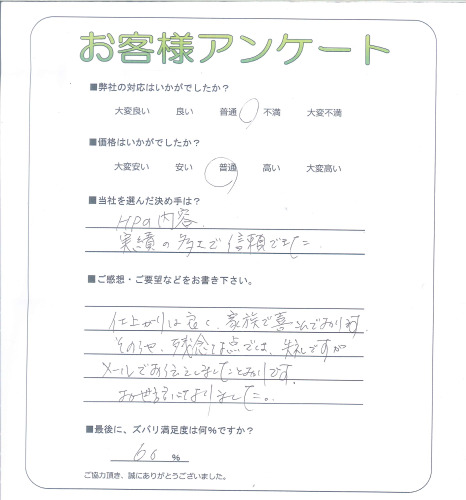 お客様アンケート
■弊社の対応はいかがでしたか?
大変良い 良い 普通 不満 大変不満
■価格はいかがでしたか?
大変安い 安い 普通 高い 大変高い
■当社を選んだ決め手は?
HPの内容、
実績の多さで信頼できた。
■ご感想・ご要望などをお書き下さい。
仕上がりは良く、家族で喜んでおります。
その他、残念な点では、失礼ですが
メールでお伝えしましたとおりです。
お世話になりました。
■最後に、ズバリ満足度は何%ですか?
60 %
ご協力頂き、誠にありがとうございました。